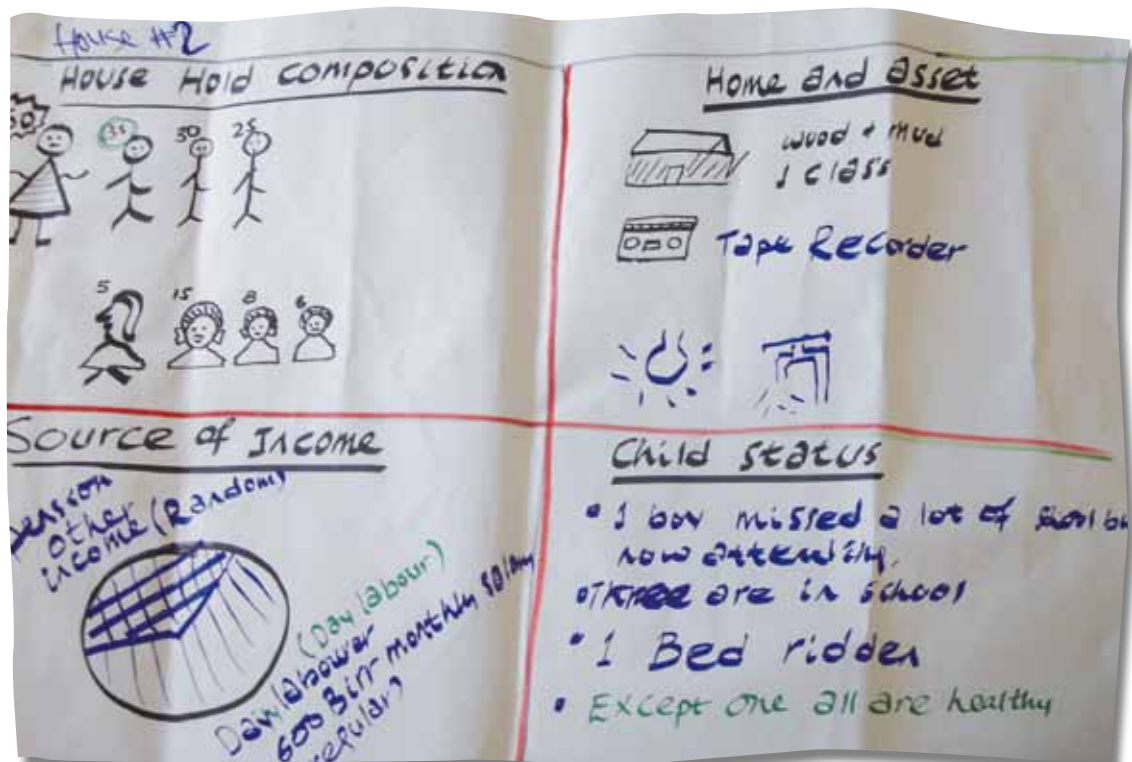 House #2
House Hold composition
30 25
5 15 8 6
Home and asset
wood + mud
1 class
Tape Recorder
Source of Income
other
income (Random)
(Day labour)
Day labower
600 Birr monthly salary
regular)
Child status
• 1 boy missed a lot of
now attending.
• Three are in school
• 1 Bed ridden
• Except one all are healthy